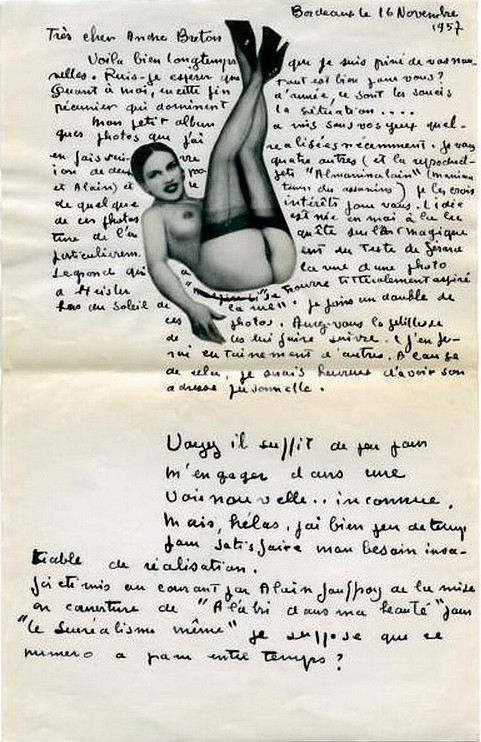 Bordeaux le 16 Novembre
1957
Très cher Andre Breton
Voila bien longtemps que je suis privé de vos nou-
velles. Puis-je esperer que tout est bien pour vous?
Quant à moi, en cette fin d'année, ce sont les soucis
pécunier qui dominent la situation....
Mon petit album a mis sous vos yeux quel-
ques photos que j'ai realisées récemment. Je vous
en fais suivre quatre autres (et la reproduct-
ion de deux projets "Almanimalain" (
et Alain) et des assassins) je les crois
de quelque intérêts pour vous. L'idée
de ces photos est née en mai à la lec
ture de l'en quête sur l'Art magique
particulièrem. ent du Texte de Gérard
Legrand qui a la vue d'une photo
a Heisler se trouve littéralement aspiré
hors du soleil de la rue". Je joins un double de
ces photos. Aurez-vous la gentillesse
de les lui faire suivre. (J'en fe-
rai certainement d'autres. A cause
de cela, je serais heureux d'avoir son
adresse personnelle.
Voyez il suffit de peu pour
m'engager dans une
voie nouvelle.. inconnue.
Mais, hélas, j'ai bien peu de temps
pour satisfaire mon besoin insa-
tiable de réalisation.
J'ai été mis au courant par Alain Jouffroy de la mise
en couverture de "A l'abri dans ma beauté" pour
"le Surréalisme même" je suppose que ce
numero a paru entre temps?